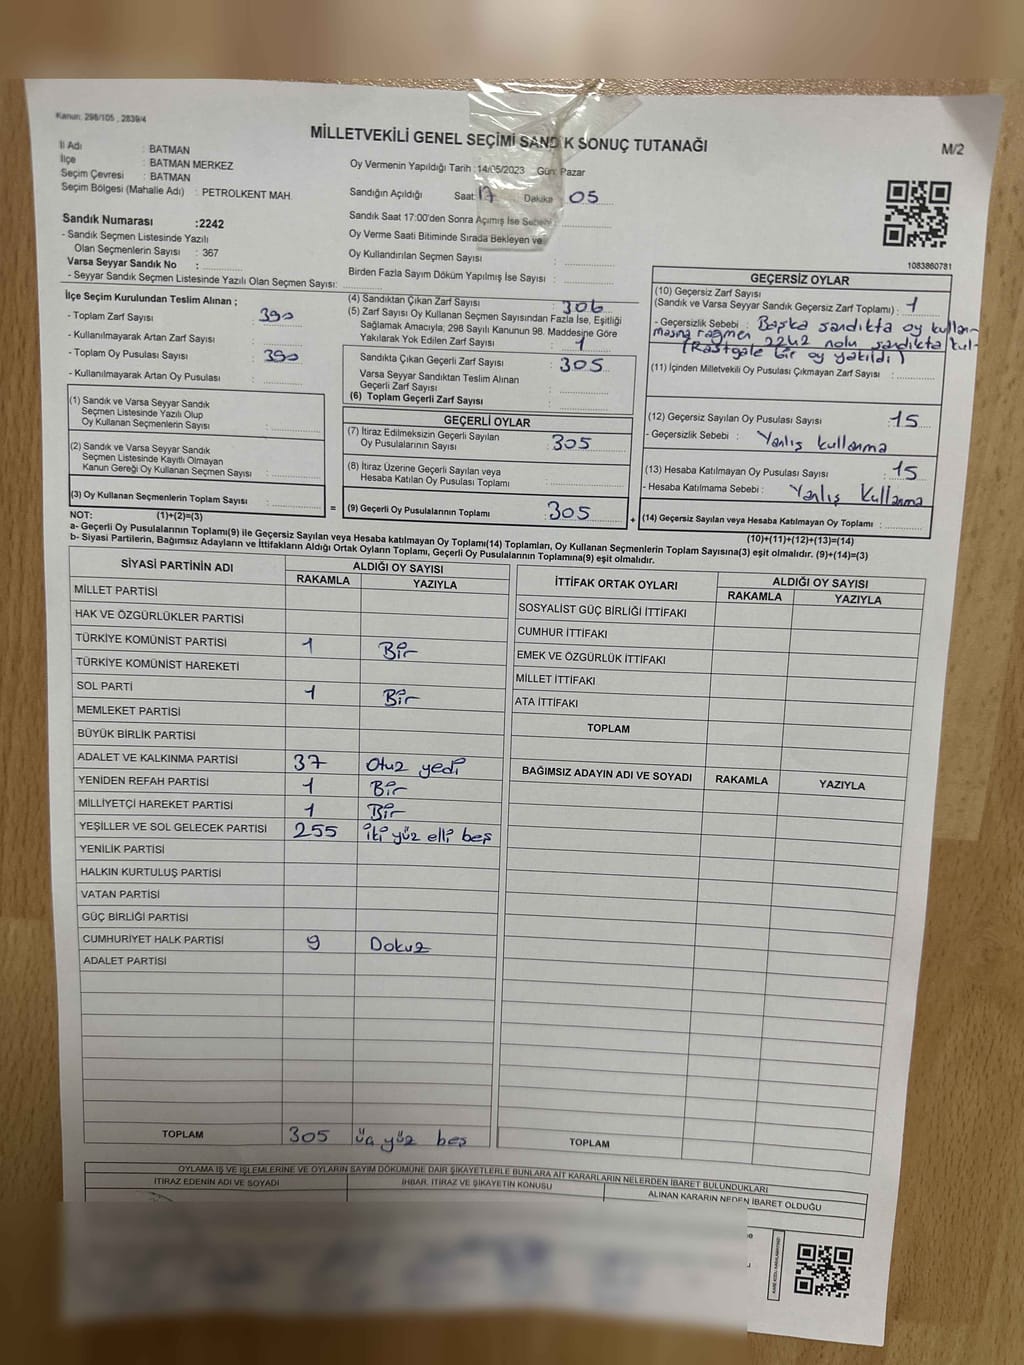 Kanun: 298/105 , 2839/4
MİLLETVEKİLİ GENEL SEÇİMİ SANDIK SONUÇ TUTANAĞI
M/2
İl Adı : BATMAN
İlçe : BATMAN MERKEZ
Seçim Çevresi : BATMAN
Seçim Bölgesi (Mahalle Adı) : PETROLKENT MAH.
Oy Vermenin Yapıldığı Tarih : 14/05/2023 Gün: Pazar
Sandığın Açıldığı Saat: 17 Dakika 05
Sandık Saat 17:00'den Sonra Açımış İse Sebebi :
Oy Verme Saati Bitiminde Sırada Bekleyen ve
Oy Kullandırılan Seçmen Sayısı :
Birden Fazla Sayım Döküm Yapılmış İse Sayısı :
Sandık Numarası :2242
- Sandık Seçmen Listesinde Yazılı
Olan Seçmenlerin Sayısı : 367
Varsa Seyyar Sandık No :
- Seyyar Sandık Seçmen Listesinde Yazılı Olan Seçmen Sayısı:
1083860781
İlçe Seçim Kurulundan Teslim Alınan ;
- Toplam Zarf Sayısı : 390
- Kullanılmayarak Artan Zarf Sayısı :
- Toplam Oy Pusulası Sayısı : 390
- Kullanılmayarak Artan Oy Pusulası :
(1) Sandık ve Varsa Seyyar Sandık
Seçmen Listesinde Yazılı Olup
Oy Kullanan Seçmenlerin Sayısı :
(2) Sandık ve Varsa Seyyar Sandık
Seçmen Listesinde Kayıtlı Olmayan
Kanun Gereği Oy Kullanan Seçmen Sayısı :
(3) Oy Kullanan Seçmenlerin Toplam Sayısı :
=
(4) Sandıktan Çıkan Zarf Sayısı : 306
(5) Zarf Sayısı Oy Kullanan Seçmen Sayısından Fazla İse, Eşitliği
Sağlamak Amacıyla; 298 Sayılı Kanunun 98. Maddesine Göre
Yakılarak Yok Edilen Zarf Sayısı : 1
Sandıkta Çıkan Geçerli Zarf Sayısı : 305
Varsa Seyyar Sandıktan Teslim Alınan
Geçerli Zarf Sayısı :
(6) Toplam Geçerli Zarf Sayısı :
GEÇERLİ OYLAR
(7) İtiraz Edilmeksizin Geçerli Sayılan
Oy Pusulalarının Sayısı : 305
(8) İtiraz Üzerine Geçerli Sayılan veya
Hesaba Katılan Oy Pusulası Toplamı :
(9) Geçerli Oy Pusulalarının Toplamı : 305
+
GEÇERSİZ OYLAR
(10) Geçersiz Zarf Sayısı
(Sandık ve Varsa Seyyar Sandık Geçersiz Zarf Toplamı) : 1
- Geçersizlik Sebebi : Başka sandıkta oy kullan-
masına rağmen 2242 nolu sandıkta kul-
(Rastgele bir oy yakıldı)
(11) İçinden Milletvekili Oy Pusulası Çıkmayan Zarf Sayısı :
(12) Geçersiz Sayılan Oy Pusulası Sayısı : 15
- Geçersizlik Sebebi : Yanlış kullanma
(13) Hesaba Katılmayan Oy Pusulası Sayısı : 15
- Hesaba Katılmama Sebebi : Yanlış kullanma
(14) Geçersiz Sayılan veya Hesaba Katılmayan Oy Toplamı :
NOT: (1)+(2)=(3)
(10)+(11)+(12)+(13)=(14)
a- Geçerli Oy Pusulalarının Toplamı(9) ile Geçersiz Sayılan veya Hesaba katılmayan Oy Toplamı(14) Toplamları, Oy Kullanan Seçmenlerin Toplam Sayısına(3) eşit olmalıdır. (9)+(14)=(3)
b- Siyasi Partilerin, Bağımsız Adayların ve İttifakların Aldığı Ortak Oyların Toplamı, Geçerli Oy Pusulalarının Toplamına(9) eşit olmalıdır.
SİYASİ PARTİNİN ADI ALDIĞI OY SAYISI
RAKAMLA YAZIYLA
MİLLET PARTİSİ
HAK VE ÖZGÜRLÜKLER PARTİSİ
TÜRKİYE KOMÜNİST PARTİSİ 1 Bir
TÜRKİYE KOMÜNİST HAREKETİ
SOL PARTİ 1 Bir
MEMLEKET PARTİSİ
BÜYÜK BİRLİK PARTİSİ
ADALET VE KALKINMA PARTİSİ 37 Otuz yedi
YENİDEN REFAH PARTİSİ 1 Bir
MİLLİYETÇİ HAREKET PARTİSİ 1 Bir
YEŞİLLER VE SOL GELECEK PARTİSİ 255 iki yüz elli beş
YENİLİK PARTİSİ
HALKIN KURTULUŞ PARTİSİ
VATAN PARTİSİ
GÜÇ BİRLİĞİ PARTİSİ
CUMHURİYET HALK PARTİSİ 9 Dokuz
ADALET PARTİSİ
TOPLAM 305 üç yüz beş
İTTİFAK ORTAK OYLARI ALDIĞI OY SAYISI
RAKAMLA YAZIYLA
SOSYALİST GÜÇ BİRLİĞİ İTTİFAKI
CUMHUR İTTİFAKI
EMEK VE ÖZGÜRLÜK İTTİFAKI
MİLLET İTTİFAKI
ATA İTTİFAKI
TOPLAM
BAĞIMSIZ ADAYIN ADI VE SOYADI RAKAMLA YAZIYLA
TOPLAM
OYLAMA İŞ VE İŞLEMLERİNE VE OYLARIN SAYIM DÖKÜMÜNE DAİR ŞİKAYETLERLE BUNLARA AİT KARARLARIN NELERDEN İBARET BULUNDUKLARI
İTİRAZ EDENİN ADI VE SOYADI İHBAR, İTİRAZ VE ŞİKAYETİN KONUSU ALINAN KARARIN NEDEN İBARET OLDUĞU